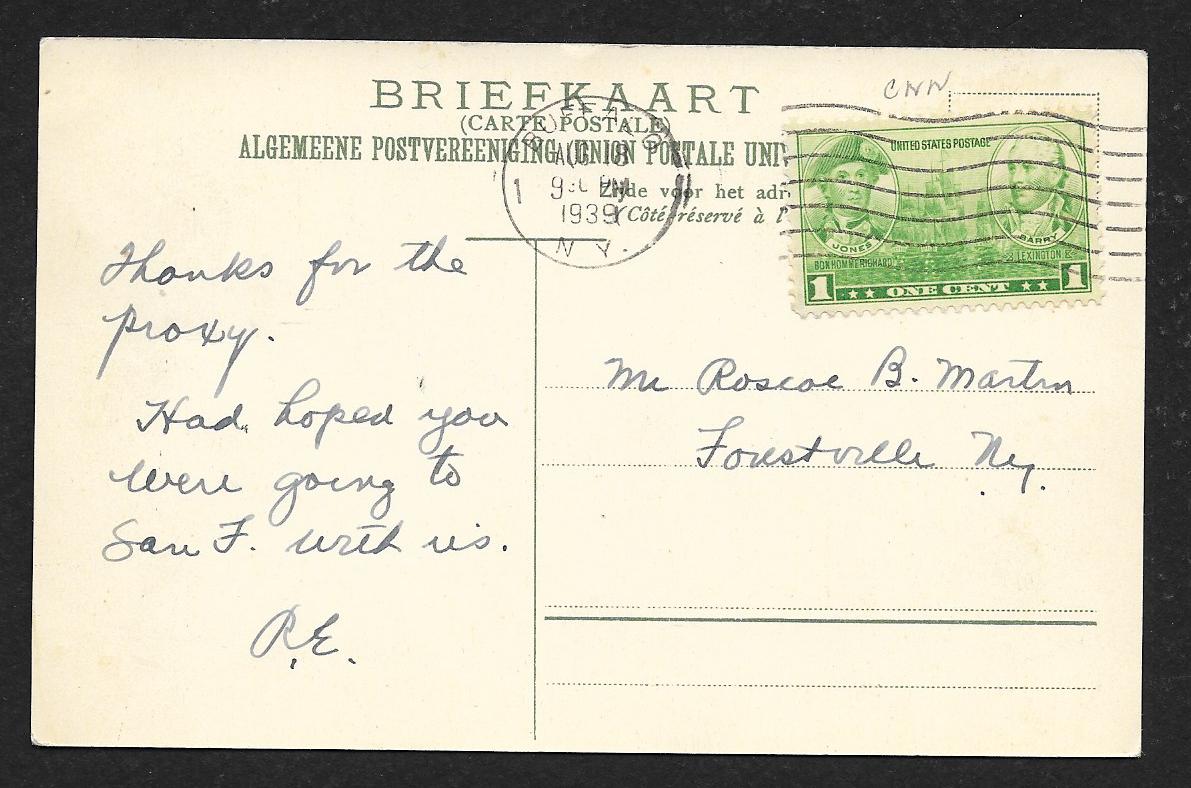 CNW
BRIEFKAART
(CARTE POSTALE)
ALGEMEENE POSTVEREENIGING (UNION POSTALE UNI
Zijde voor het adr
(Côté réservé à l'
BUFFALO
AUG 18
1 9 30 PM
1939
N.Y.
UNITED STATES POSTAGE
JONES
BARRY
BON HOMME RICHARD
LEXINGTON
1 ONE CENT 1
Thanks for the
proxy.
Had hoped you
were going to
San F. with us.
R.E.
Mr Roscoe B. Martin
Forestville Ny.